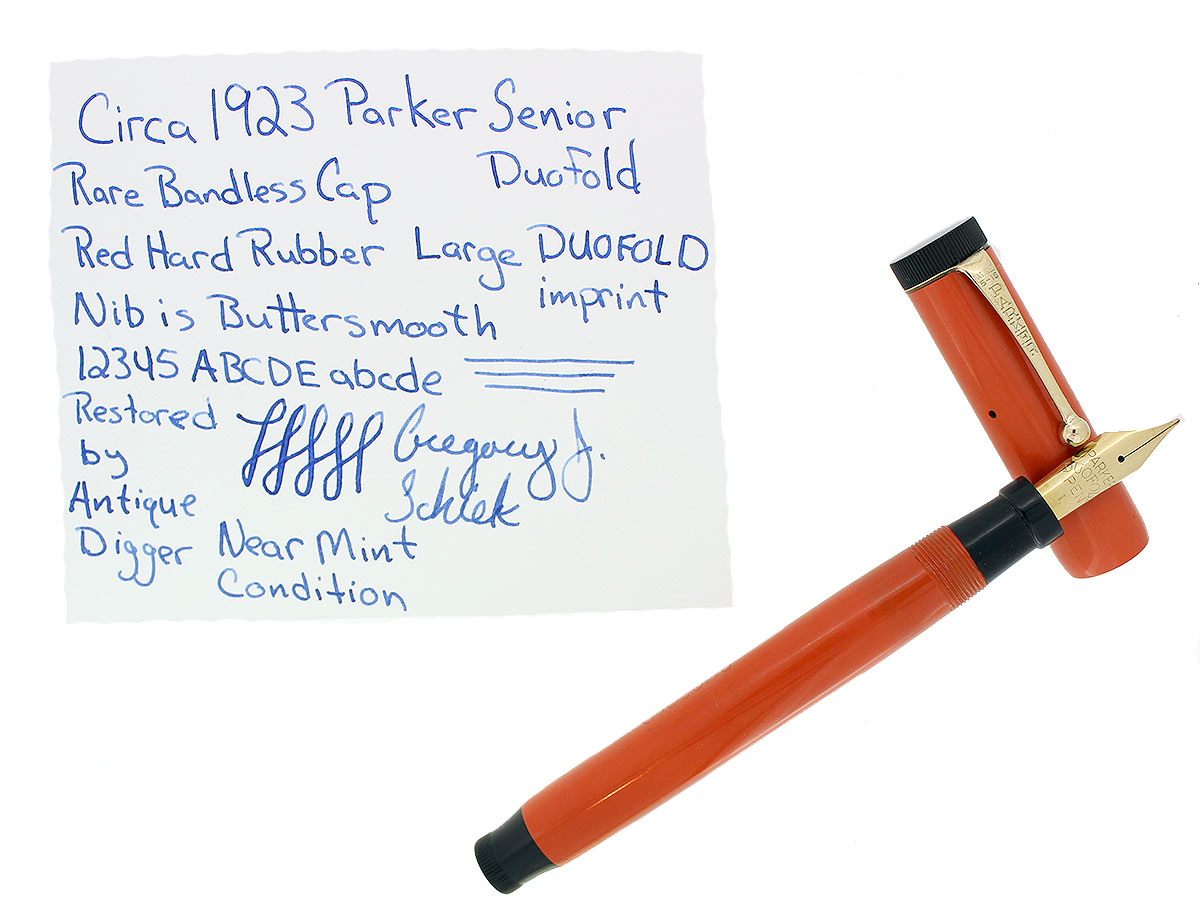 Circa 1923 Parker Senior
Duofold
Rare Bandless Cap
Red Hard Rubber Large DUOFOLD
imprint
Nib is Buttersmooth
12345 ABCDE abcde
Restored
by
Antique
Digger
Gregory J.
Schiek
Near Mint
Condition
PARKER
PARKER
DUOFOLD
PEN